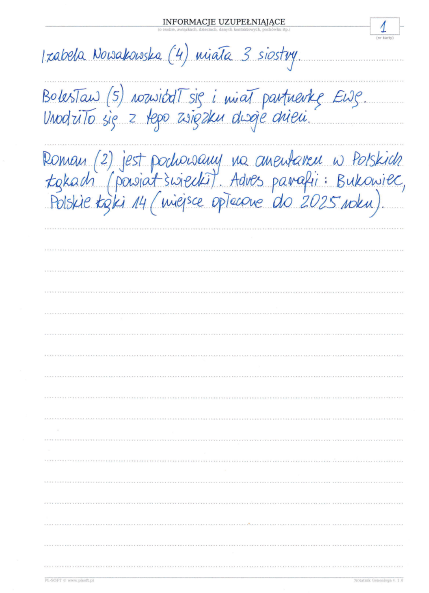 INFORMACJE UZUPEŁNIAJĄCE
1
Izabela Nowakowska (4) miała 3 siostry.
Bolesław (5) rozwiódł się i miał partnerkę Ewę.
Urodziło się z tego związku dwoje dzieci.
Roman (2) jest pochowany na cmentarzu w Polskich
Łąkach (powiat świecki). Adres parafii: Bukowiec,
Polskie Łąki 14 (miejsce opłacone do 2025 roku).